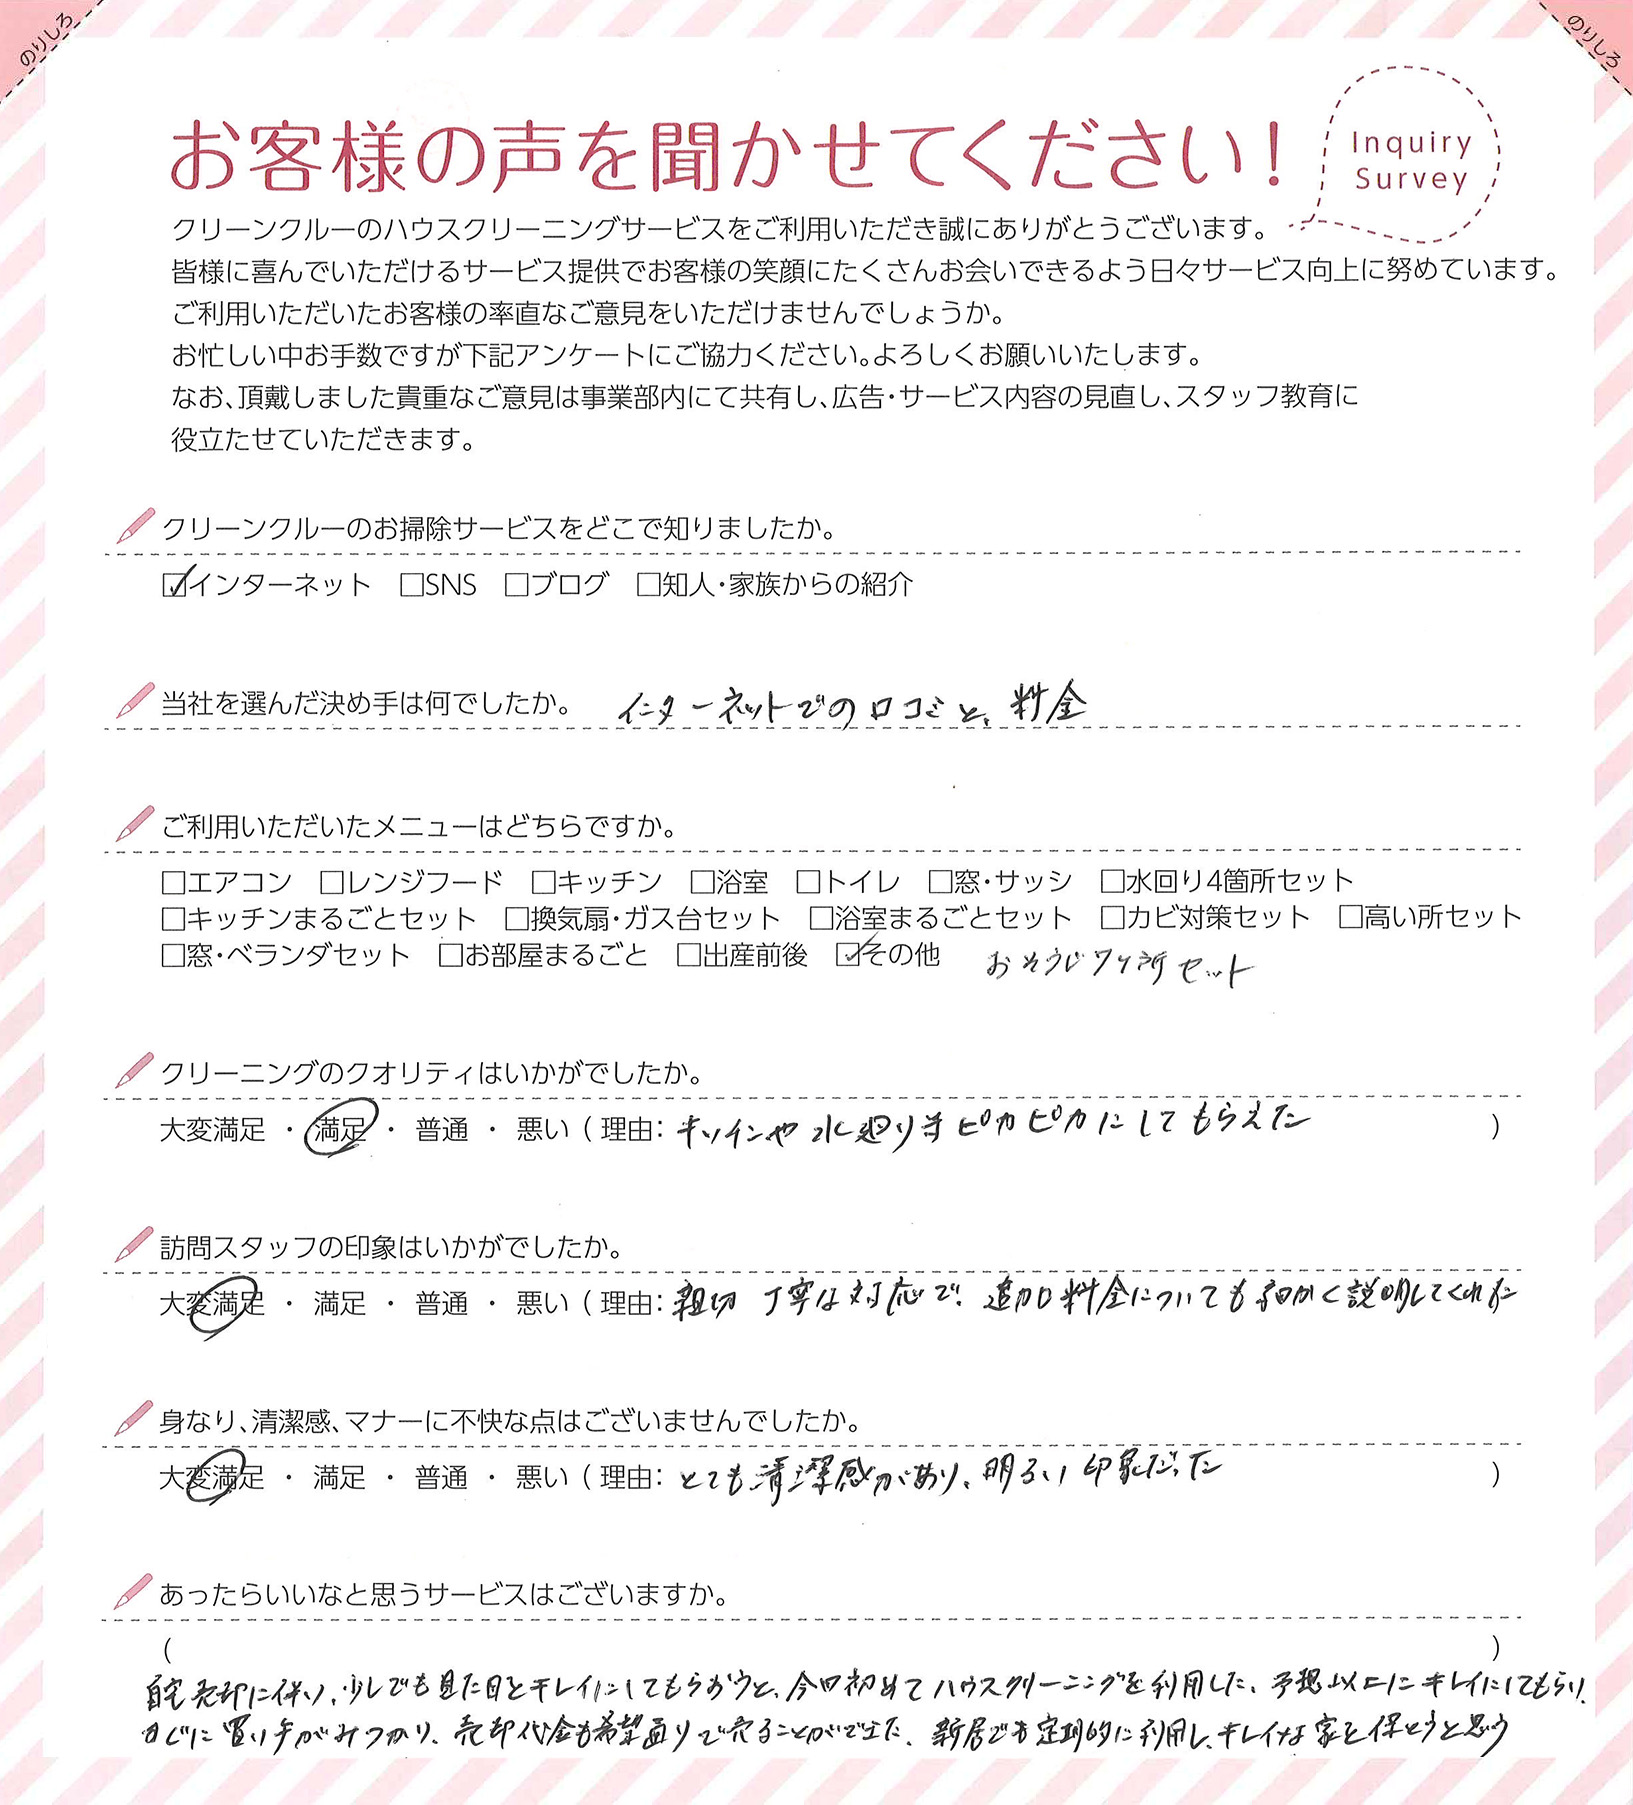 のりしろ
のりしろ
お客様の声を聞かせてください！
Inquiry
Survey
クリーンクルーのハウスクリーニングサービスをご利用いただき誠にありがとうございます。
皆様に喜んでいただけるサービス提供でお客様の笑顔にたくさんお会いできるよう日々サービス向上に努めています。
ご利用いただいたお客様の率直なご意見をいただけませんでしょうか。
お忙しい中お手数ですが下記アンケートにご協力ください。よろしくお願いいたします。
なお、頂戴しました貴重なご意見は事業部内にて共有し、広告・サービス内容の見直し、スタッフ教育に
役立たせていただきます。
クリーンクルーのお掃除サービスをどこで知りましたか。
☑インターネット □SNS □ブログ □知人・家族からの紹介
当社を選んだ決め手は何でしたか。 インターネットでの口コミと、料金
ご利用いただいたメニューはどちらですか。
□エアコン □レンジフード □キッチン □浴室 □トイレ □窓・サッシ □水回り4箇所セット
□キッチンまるごとセット □換気扇・ガス台セット □浴室まるごとセット □カビ対策セット □高い所セット
□窓・ベランダセット □お部屋まるごと □出産前後 ☑その他 おそうじ7ヶ所セット
クリーニングのクオリティはいかがでしたか。
大変満足 ・ 満足 ・ 普通 ・ 悪い ( 理由： キッチンや水廻り等ピカピカにしてもらえた )
訪問スタッフの印象はいかがでしたか。
大変満足 ・ 満足 ・ 普通 ・ 悪い ( 理由： 親切 丁寧な対応で、追加料金についても細かく説明してくれた
身なり、清潔感、マナーに不快な点はございませんでしたか。
大変満足 ・ 満足 ・ 普通 ・ 悪い ( 理由： とても清潔感があり、明るい印象だった )
あったらいいなと思うサービスはございますか。
( )
自宅売却に伴い、少しでも見た目をキレイにしてもらおうと、今回初めてハウスクリーニングを利用した、予想以上にキレイにしてもらい、
すぐに買い手がみつかり、売却代金も希望通りで売ることができた、新居でも定期的に利用し、キレイな家を保とうと思う